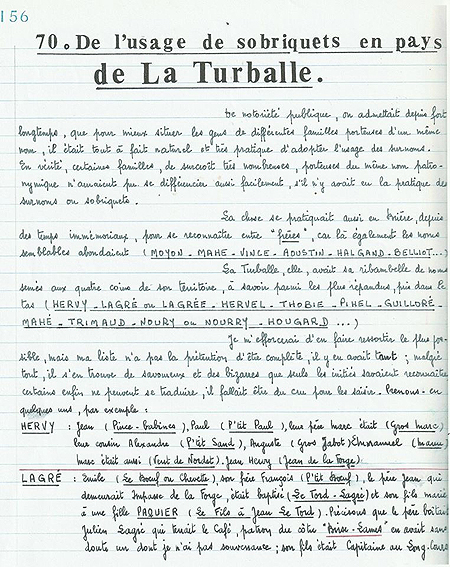 156
70. De l'usage de sobriquets en pays
de La Turballe.
De notoriété publique, on admettait depuis fort
longtemps, que pour mieux situer les gens de différentes familles porteuses d'un même
nom, il était tout à fait naturel et très pratique d'adopter l'usage des surnoms.
En vérité, certaines familles, de surcroît très nombreuses, porteuses du même nom patro-
nymique n'auraient pu se différencier aussi facilement, s'il n'y avait eu la pratique des
surnoms ou sobriquets.
La chose se pratiquait aussi en Brière, depuis
des temps immémoriaux, pour se reconnaître entre "frères", car là également les noms
semblables abondaient (MOYON - MAHE - VINCE - AOUSTIN - HALGAND - BELLIOT...)
La Turballe, elle, avait sa ribambelle de noms
semés aux quatre coins de son territoire, à savoir parmi les plus répandus, pris dans le
tas (HERVY - LAGRÉ ou LAGRÉE - HERVEL - THOBIE - PIHEL - GUILLORÉ -
MAHÉ - TRIMAUD - NOURY ou NOURRY - HOUGARD ...)
Je m'efforcerai d'en faire ressortir le plus pos-
sible, mais ma liste n'a pas la prétention d'être complète, il y en avait tant ; malgré
tout, il s'en trouve de savoureux et des bizarres que seuls les initiés savaient reconnaître
certains enfin ne peuvent se traduire, il fallait être du cru pour les saisir. Prenons-en
quelques uns, par exemple :
HERVY : Jean (Pince-Cabines), Paul (P'tit Paul), leur père Marc était (Gros Marc)
leur cousin Alexandre (P'tit Sand), Auguste (Gros Jabot), Emmanuel
Marc était aussi (Vent de Nordet). Jean Hervy (Jean de la Forge)
LAGRÉ : Emile (Le Boeuf ou Chevette), son frère François (P'tit Boeuf), le père Jean qui
demeurait Impasse de la Forge, était baptisé (Le Tord-Lagré) et son fils marié
à une fille PAQUIER (Le Fils à Jean Le Tord). Précisons que le père boitait
Julien Lagré qui tenait le Café, patron du côtre "Brise-Lames" en avait sans
doute un dont je n'ai pas souvenance ; son fils était Capitaine au Long-Cours